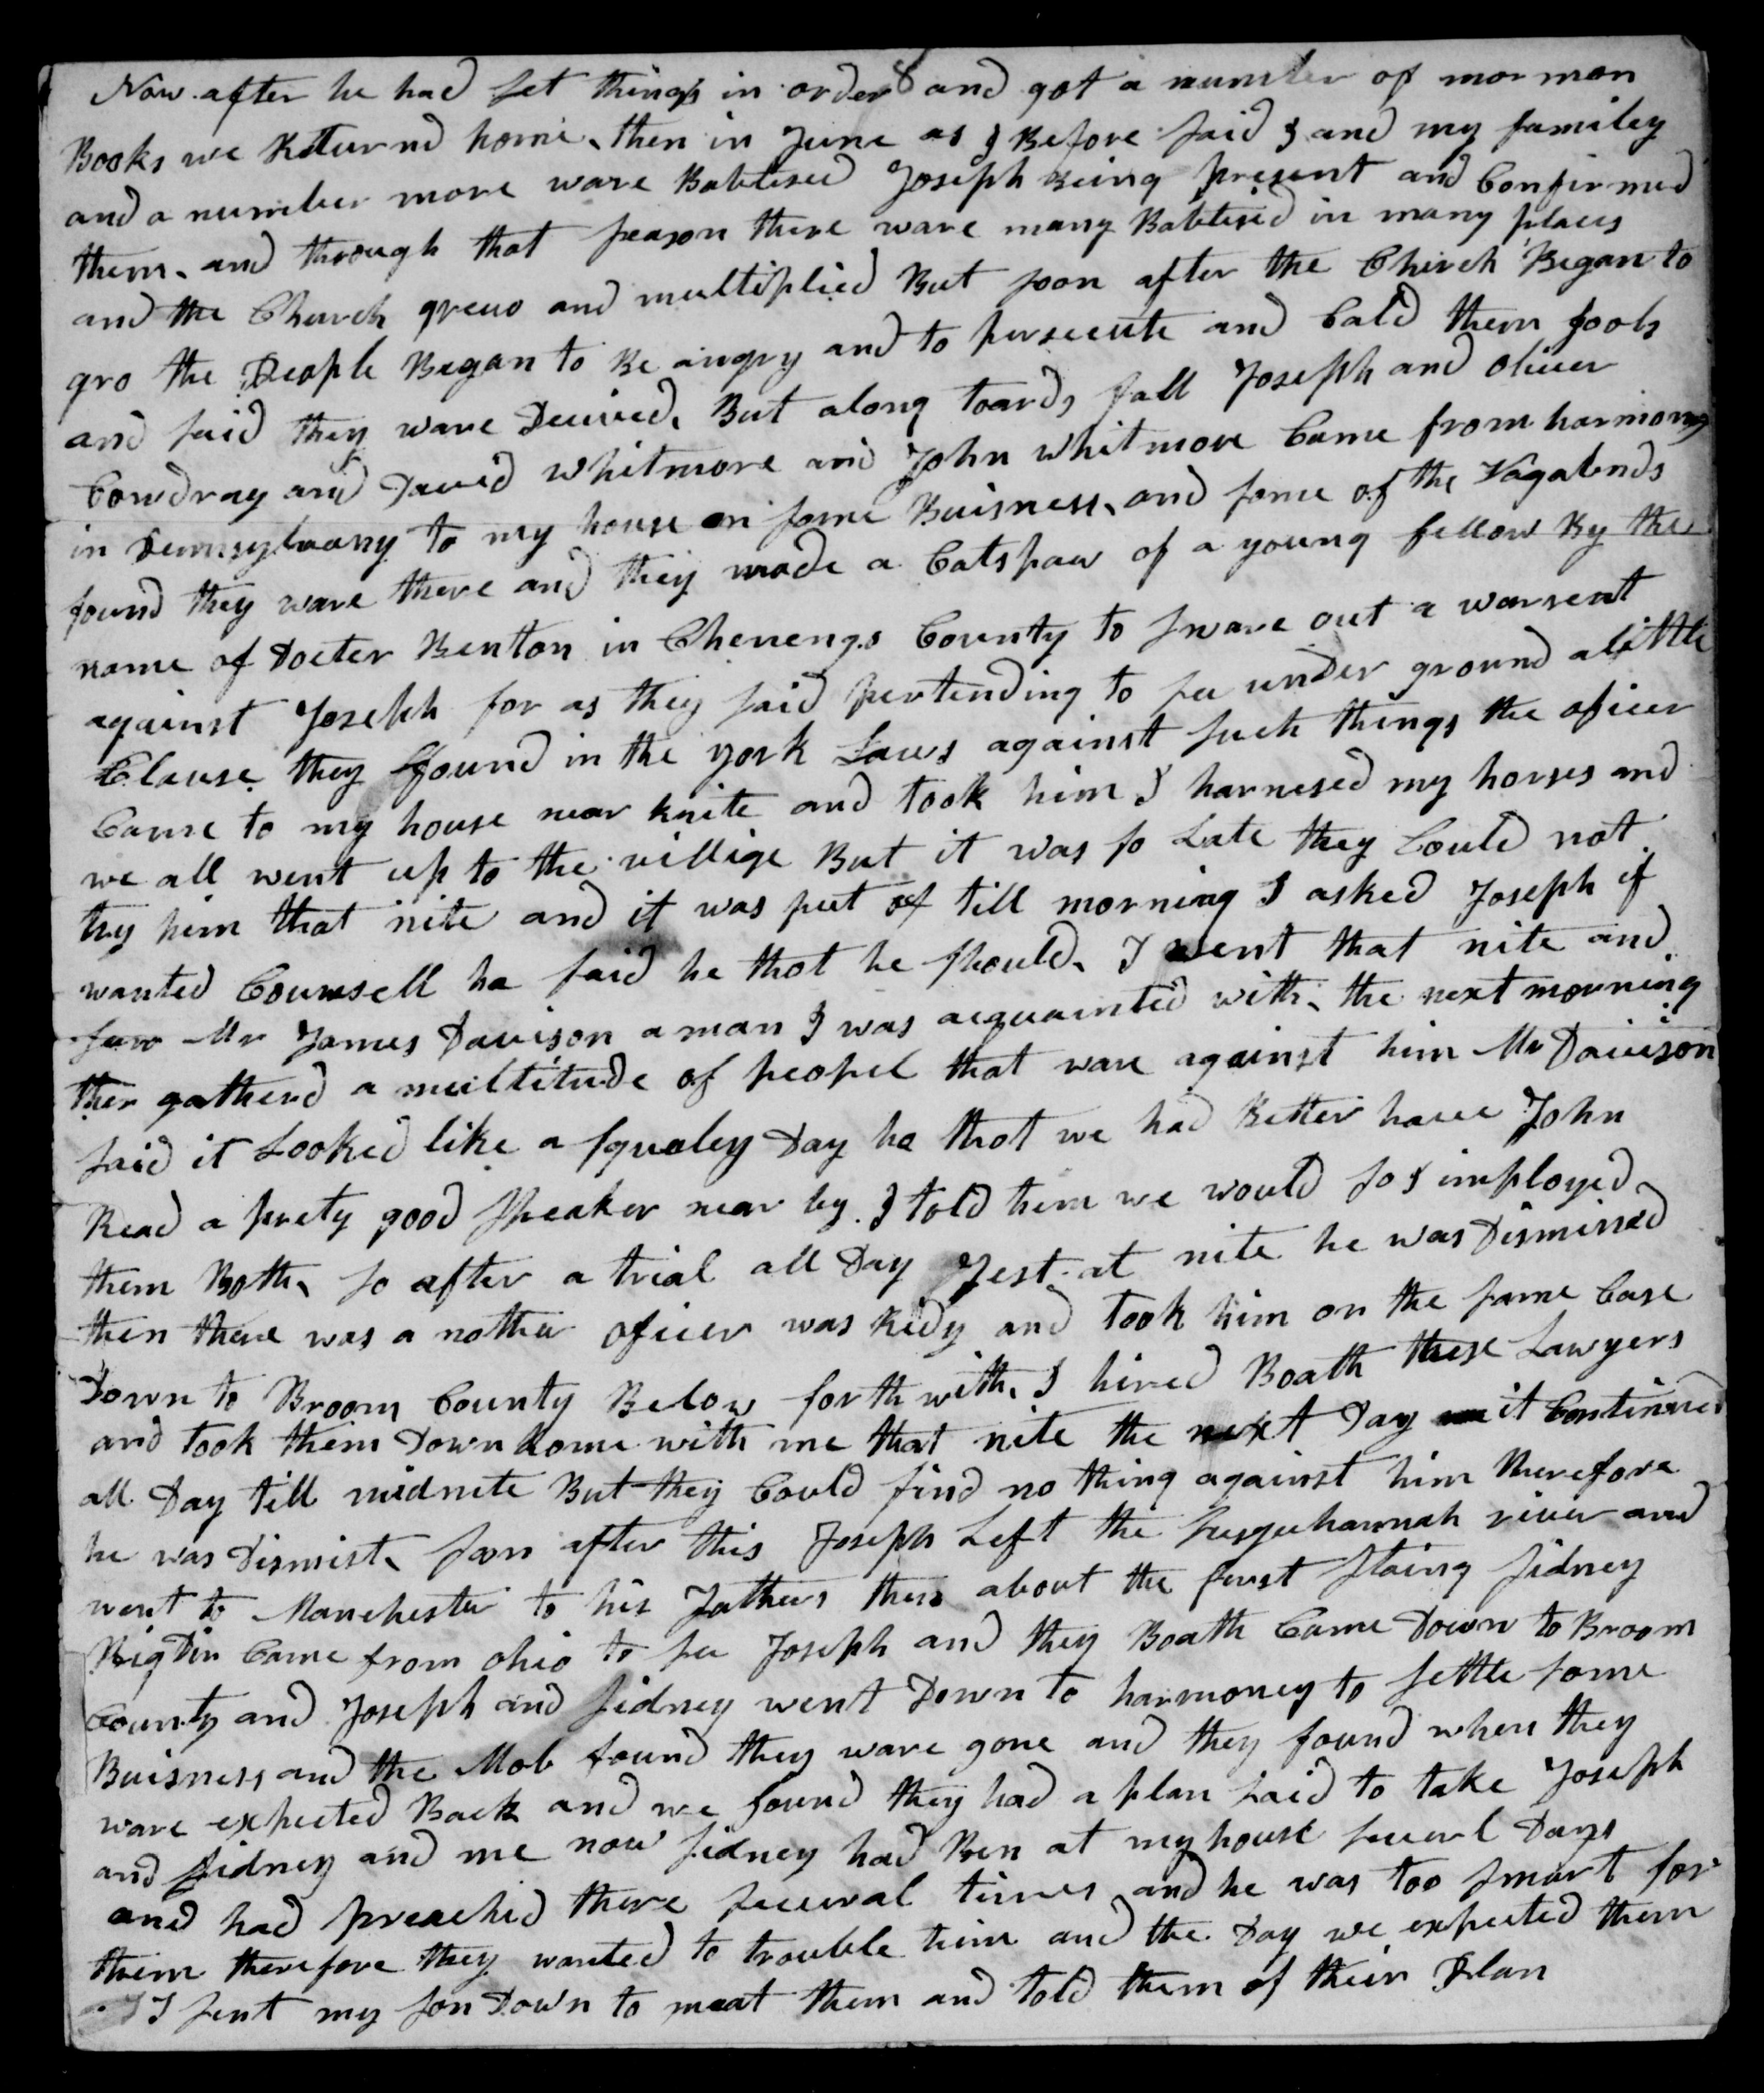 8
Now after he had set things in order and got a number of mormon
Books we Returnd home, then in June as I Before said I and my familey
and a number more ware Babtised Joseph Being present and Confirmed
them, and through that season there ware many Babtised in many places
and the Church grew and multiplied But soon after the Chirch Began to
gro the People Began to Be angry and to persecute and Cald them fools
and said they ware Decived, But along toards fall Joseph and Oliver
Cowdray and David Whitmore and John Whitmore Came from harmony
in Pennsylvany to my house on some Buisness, and some of the Vagabnds
found they ware there and they made a Catspaw of a young fellow By the
name of Docter Benton in Chenengo County to sware out a warrent
against Joseph for as they said pertending to see under ground alittle
Clause they found in the york Laws against such things the oficer
Came to my house near knite and took him I harnesed my horses and
we all went up to the villige But it was so Late they Could not
try him that nite and it was put of till morning I asked Joseph if
wanted Counsell he said he thot he should, I went that nite and
saw Mr James Davison a man I was acquainted with, the next morning
ther gatherd a multitude of peopel that ware against him Mr Davison
said it Looked like a squaley Day he thot we had Better have John
Read a prety good speaker near by I told him we would so I imployed
them Both, so after a trial all Day Jest at nite he was Dismissed
then there was a nother oficer was Redy and took him on the same Case
Down to Broom County Below forth with, I hired Boath these Lawyers
and took them Down home with me that nite the next Day it Continued
all Day till midnite But they Could find no thing against him therefore
he was Dismist, soon after this Joseph Left the susquehannah river and
went to Manchester to his Fathers then about the furst slaing sidney
Rigdin Came from ohio to see Joseph and they Boath Came Down to Broom
County and Joseph and sidney went Down to harmoney to settle some
Buisness and the Mob found they ware gone and they found when they
ware expected Back and we found they had a plan laid to take Joseph
and sidney and me now sidney had Ben at my house severl Days
and had preached there several times and he was too smart for
them therefore they wanted to trouble him and the Day we expected them
I sent my son Down to meat them and told them of their Plan